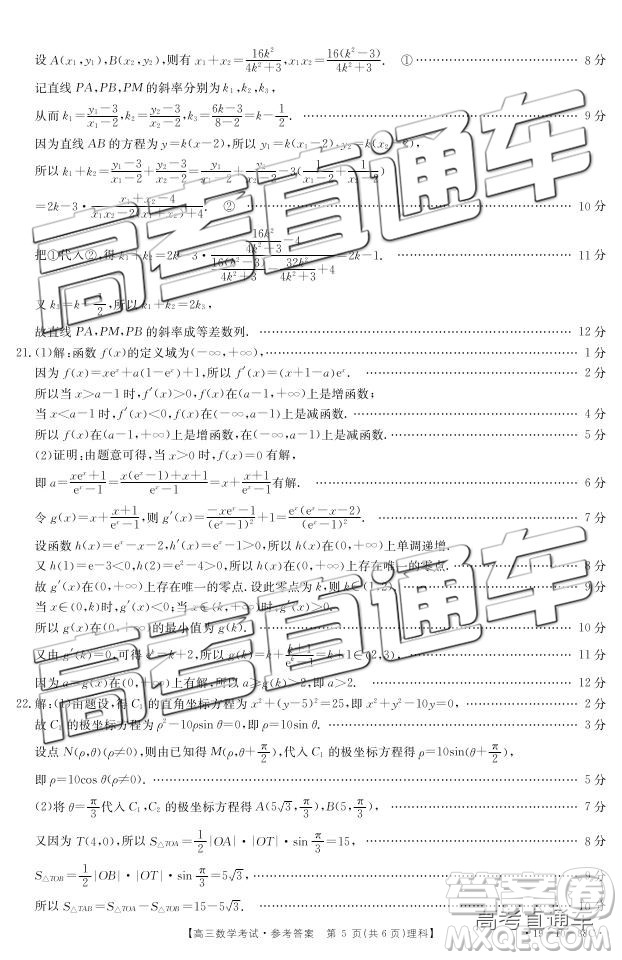 设 A(x₁,y₁),B(x₂,y₂),则有 x₁+x₂=16k²/(4k²+3),x₁x₂=16(k²−3)/(4k²+3). ① 8 分
记直线 PA,PB,PM 的斜率分别为 k₁,k₂,k₃,
从而 k₁=(y₁−3)/(x₁−2),k₂=(y₂−3)/(x₂−2),k₃=(6k−3)/(8−2)=k−1/2. 9 分
因为直线 AB 的方程为 y=k(x−2),所以 y₁=k(x₁−2),
所以 k₁+k₂=(y₁−3)/(x₁−2)+(y₂−3)/(x₂−2)
=2k−3·(x₁+x₂−4) ② 10 分
把①代入②,得 k₁+k₂=2k 3·=2k−1. 11 分
又 k₃=k−1/2,所以 k₁+k₂=2k₃,
故直线 PA,PM,PB 的斜率成等差数列. 12 分
21.(1)解:函数 f(x)的定义域为(−∞,+∞), 1 分
因为 f(x)=xeˣ+a(1−eˣ)+ 2 分
所以当 x>a−1 时,f′(x)>0,f(x)在(a−1,+∞)上是增函数;
当 x<a−1 时,f′(x)<0,f(x)在(−∞,a−1)上是减函数. 4 分
所以 f(x)在(a−1,+∞)上是增函数,在(−∞,a−1)上是减函数. 5 分
(2)证明:由题意可得,当 x>0 时,f(x)=0 有解,
即 a=(xeˣ+1)/(eˣ−1)=(x(eˣ−1)+x+1)/(eˣ−1)=x+(x+1)/(eˣ−1)有解. 6 分
令 g(x)=x+(x+1)/(eˣ−1),则 g′(x)=(−xeˣ−1)/(eˣ−1)²+1=eˣ(eˣ−x−2)/(eˣ−1)². 7 分
设函数 h(x)=eˣ−x−2,h′(x)=eˣ−1>0,所以 h(x)在(0,+∞)上单调递增.
又 h(1)=e−3<0,h(2)=e²−4>0,所以 h(x)在(0,+∞)上存在唯一的零点.
故 g′(x)在(0,+∞)上存在唯一的零点.设此零点为 k,则 k∈(1,2). 9 分
当 x∈(0,k)时,g′(x)<0;当 x∈(k,+∞)时,g′(x)>0.
所以 g(x)在(0,+∞)的最小值为 g(k). 10 分
又由 g′(k)=0,可得 eᵏ=k+2,所以 g(k)=k+(k+1)/(eᵏ−1)=k+1∈(2,3), 11 分
因为 a=g(x)在(0,+∞)上有解,所以 a≥g(k)>2,即 a>2. 12 分
22.解:(1)由题设,得 C₁ 的直角坐标方程为 x²+(y−5)²=25,即 x²+y²−10y=0, 2 分
故 C₁ 的极坐标方程为 ρ²−10ρsin θ=0,即 ρ=10sin θ. 3 分
设点 N(ρ,θ)(ρ≠0),则由已知得 M(ρ,θ+π/2),代入 C₁ 的极坐标方程得 ρ=10sin(θ+π/2),
即 ρ=10cos θ(ρ≠0). 5 分
(2)将 θ=π/3 代入 C₁,C₂ 的极坐标方程得 A(5√3,π/3),B(5,π/3), 7 分
又因为 T(4,0),所以 S△TOA=1/2|OA|·|OT|·sin π/3=15, 8 分
S△TOB=1/2|OB|·|OT|·sin π/3=5√3, 9 分
所以 S△TAB=S△TOA−S△TOB=15−5√3. 10 分
【高三数学考试·参考答案 第 5 页(共 6 页)理科】
高考直通车
高考直通车
高考直通车
答案圈